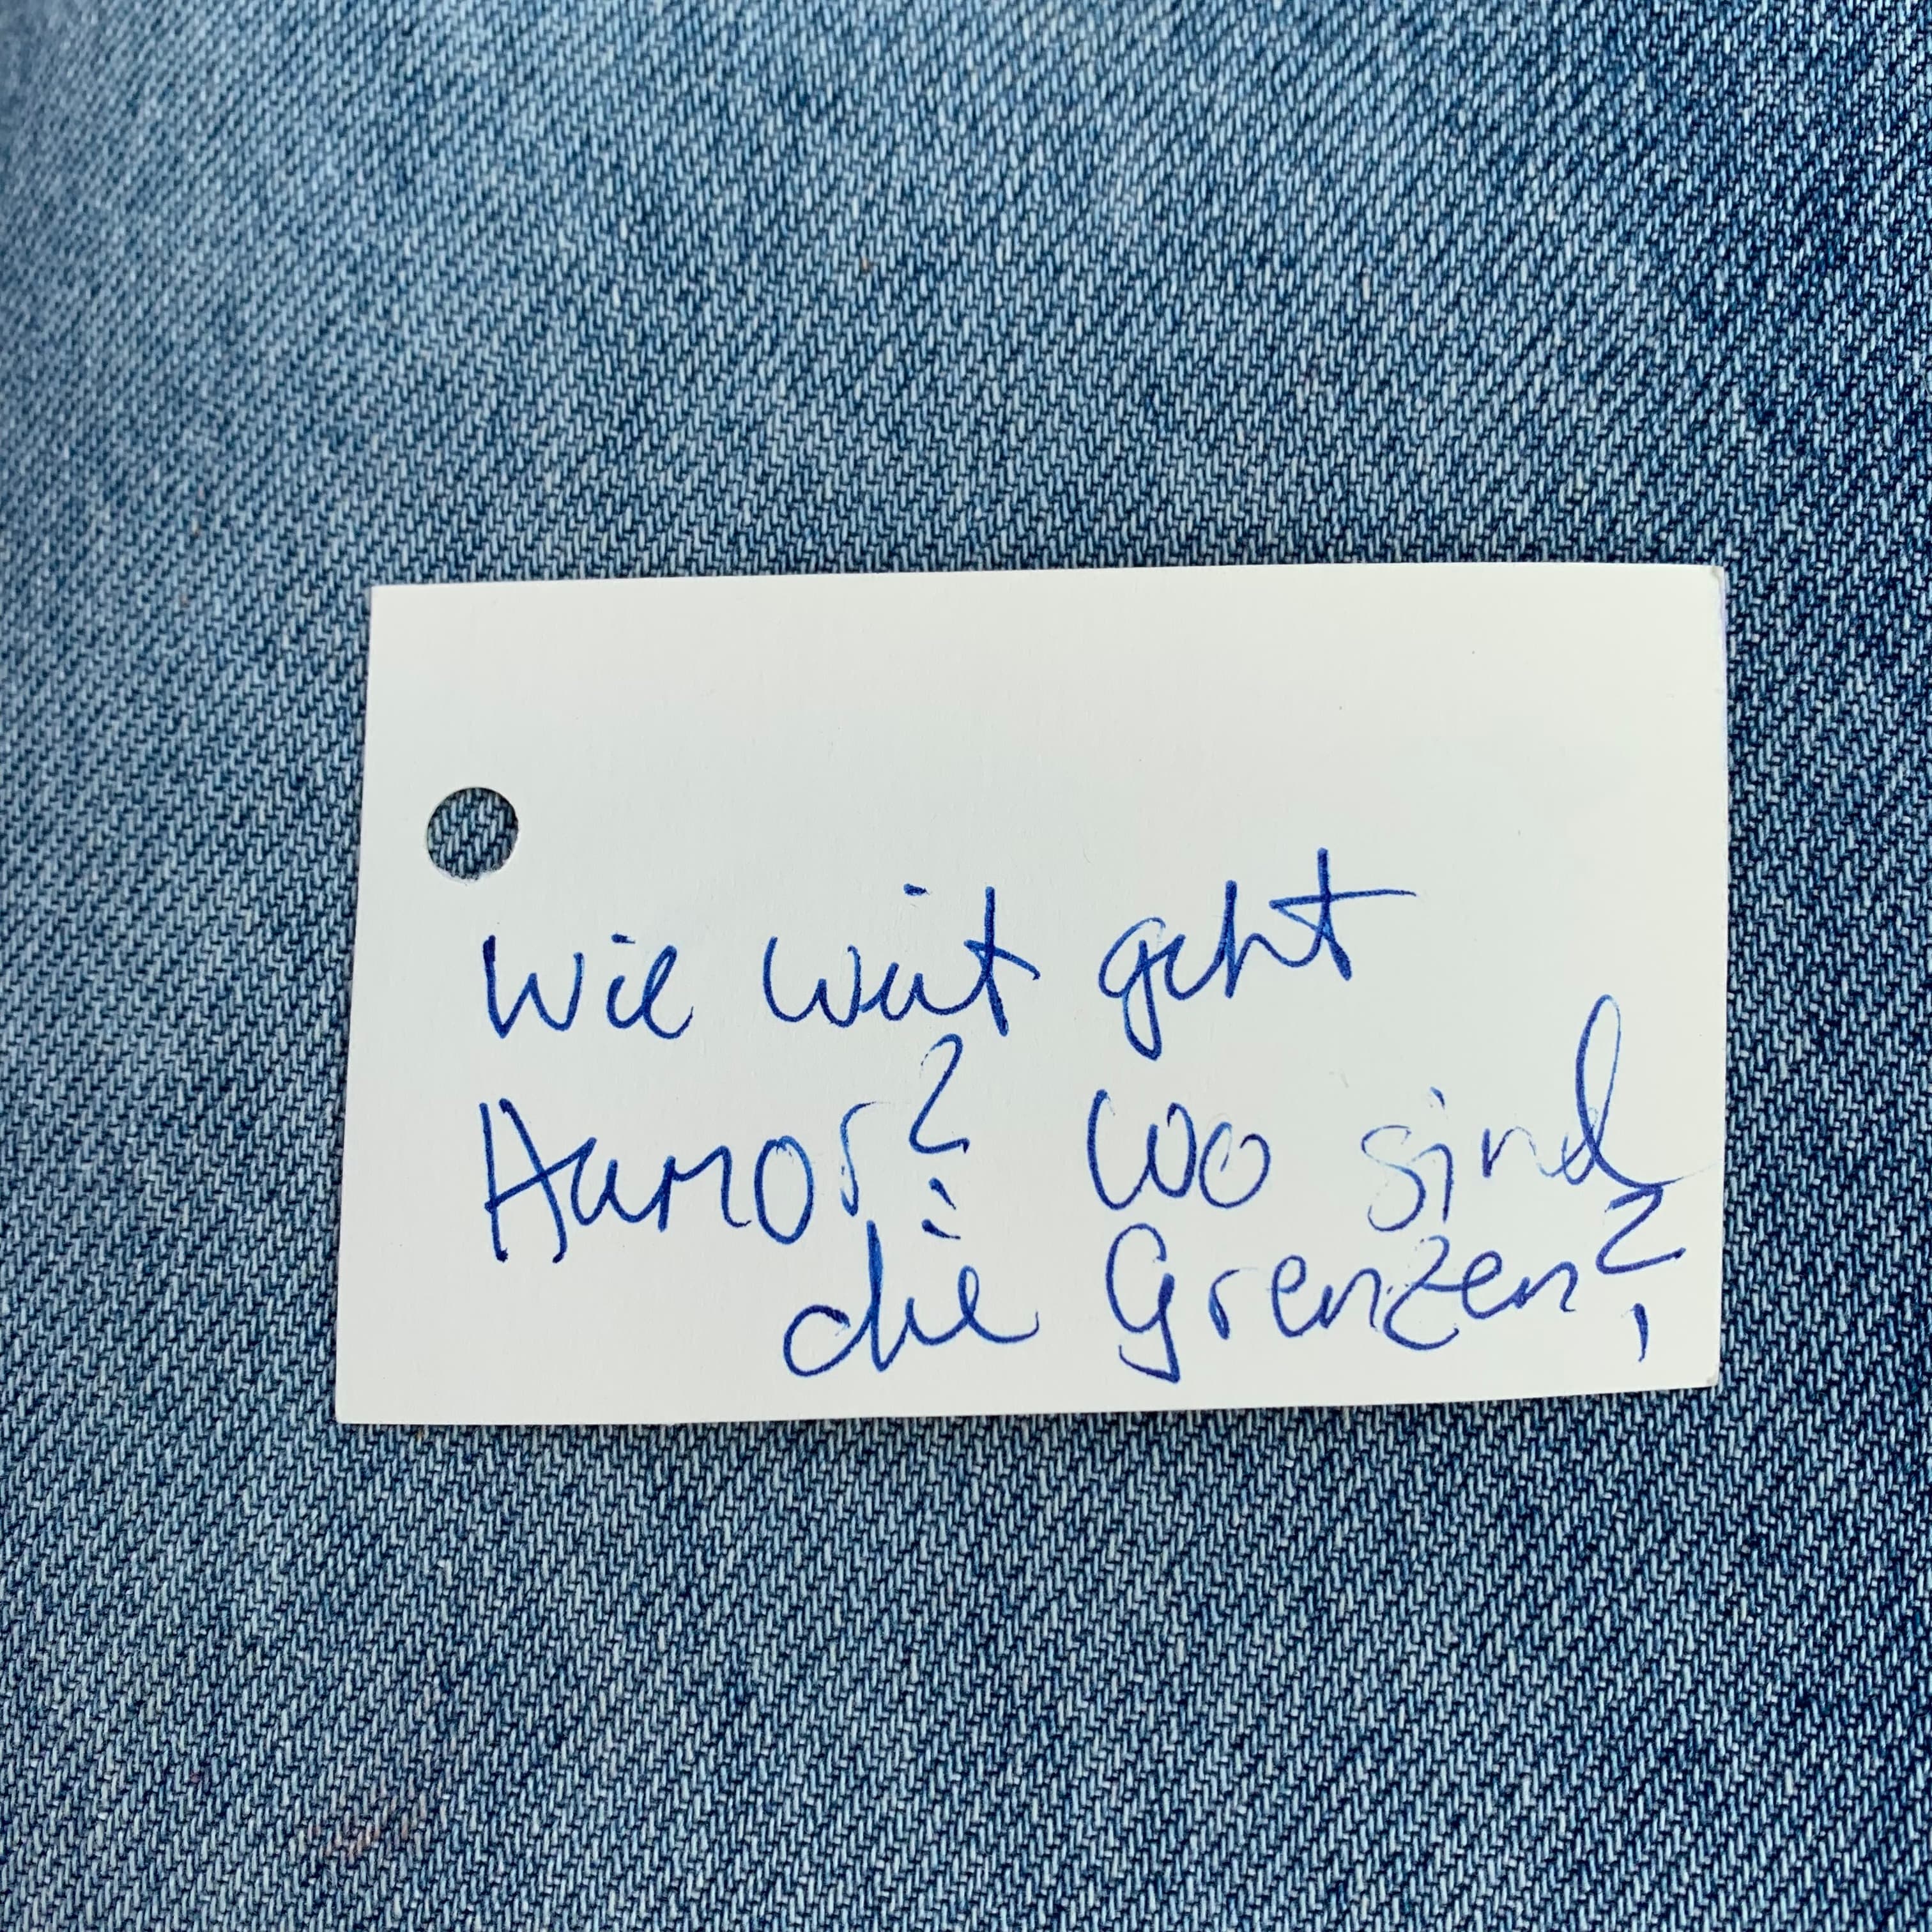 Wie weit geht
Humor? Wo sind
die Grenzen?